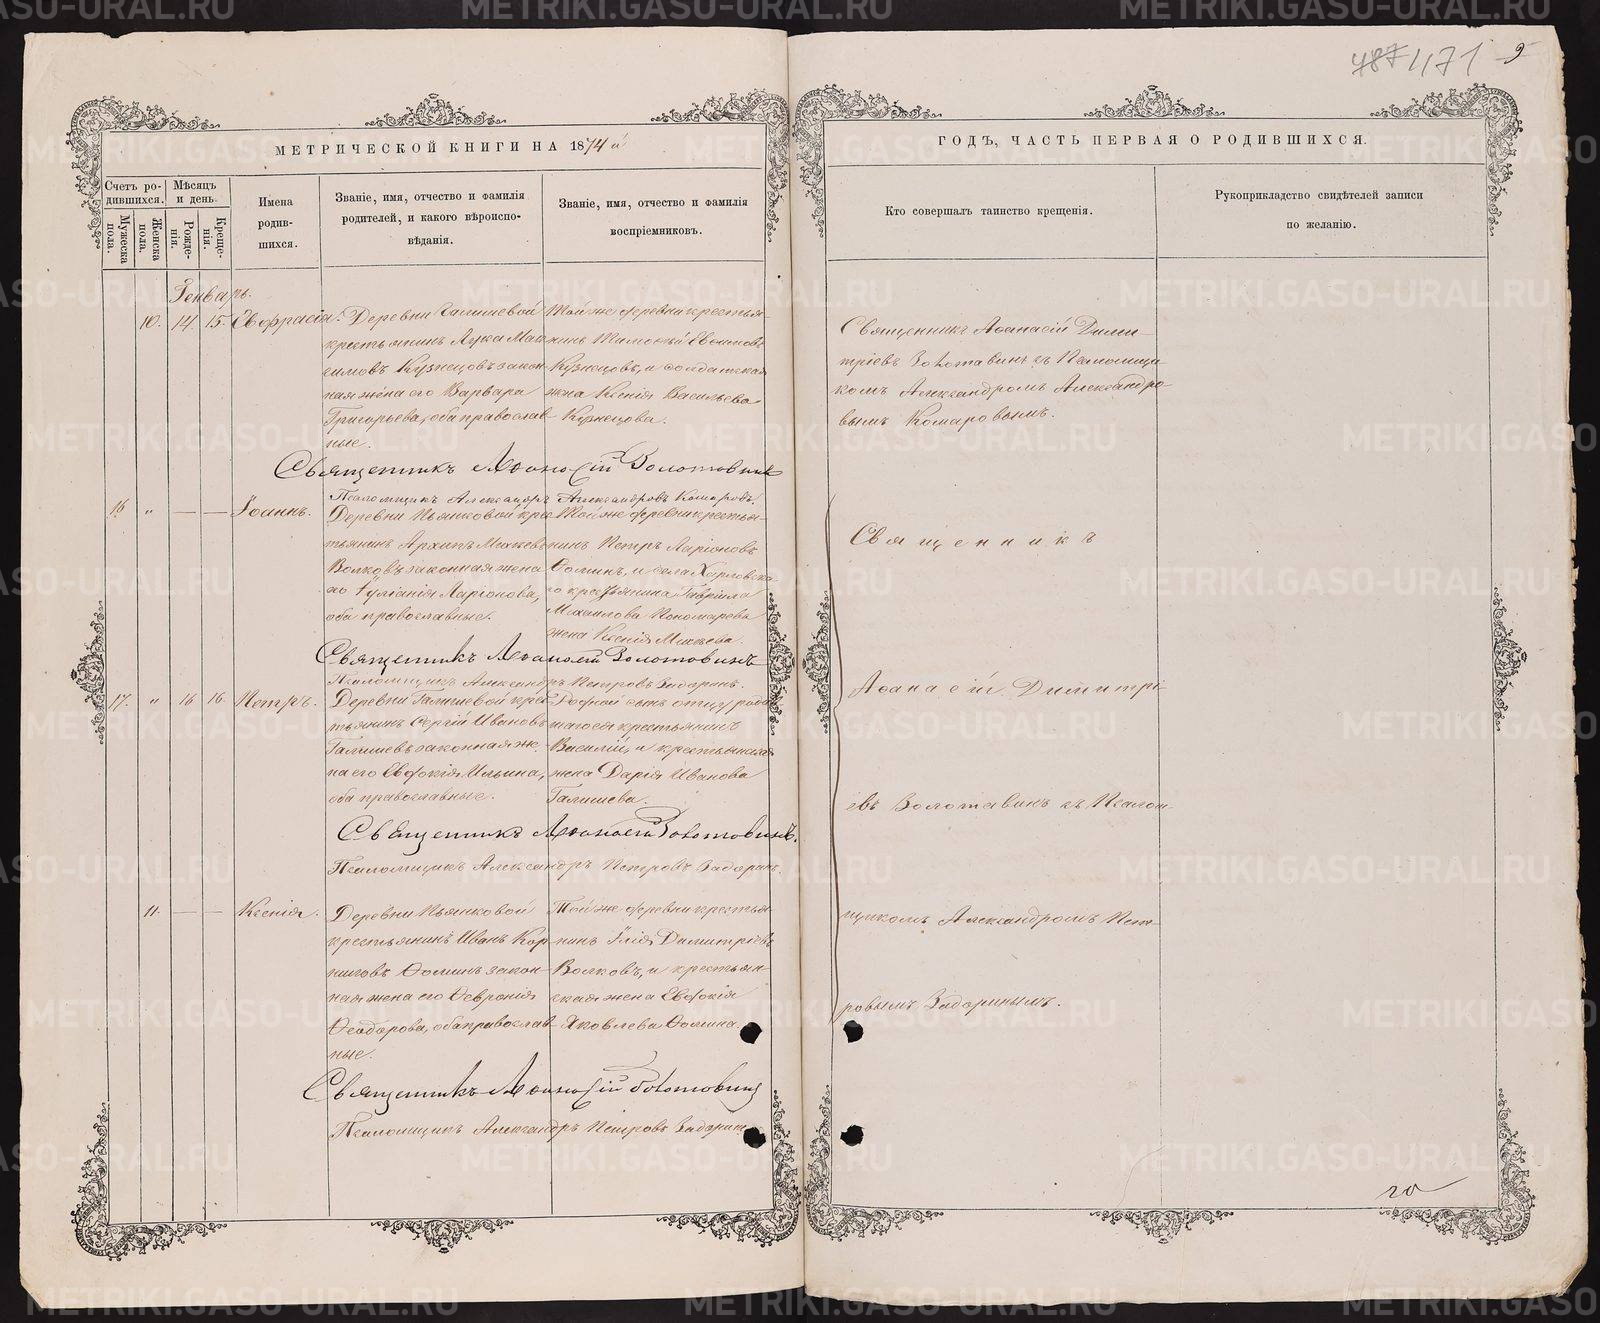 487 1171 9
МЕТРИЧЕСКОЙ КНИГИ НА 1874й
ГОДЪ, ЧАСТЬ ПЕРВАЯ О РОДИВШИХСЯ.
Счетъ ро-
дившихся.
Мужеска
пола.
Женска
пола.
Мѣсяцъ
и день.
Рожде-
нія.
Креще-
нія.
Имена
родив-
шихся.
Званіе, имя, отчество и фамилія
родителей, и какого вѣроиспо-
вѣданія.
Званіе, имя, отчество и фамилія
воспріемниковъ.
Кто совершалъ таинство крещенія.
Рукоприкладство свидѣтелей записи
по желанію.
Генварь.
10. 14. 15. Евфрасія.
Деревни Галишевой
крестьянинъ Лука Мак-
симовъ Кузнецовъ закон-
ная жена его Варвара
Григорьева, оба православ-
ные.
Той же деревни крестья-
нинъ
Кузнецовъ, и солдатская
жена Ксенія Васильева
Кузнецова.
Священникъ Аѳанасій Димит-
тріевъ Золотавинъ съ Псаломщи-
комъ Александромъ Александро-
вымъ Комаровымъ.
Священникъ Аѳанасій Золотовинъ
Псаломщикъ Александръ Александровъ Комаровъ.
16 „ — — Іоаннъ.
Деревни Пьянковой крес-
тьянинъ Архипъ
Волковъ законная жена
его Іуліанія Ларіонова,
оба православные.
Той же деревни крестья-
нинъ Петръ Ларіоновъ
Ѳоминъ, и села Харловска-
го крестьянина Гавріила
Михаилова Пономарева
жена Ксенія
Священникъ Аѳанасій Золотовинъ
Псаломщикъ Александръ Петровъ Задоринъ.
17. „ 16 16. Петръ.
Деревни Галишевой крес-
тьянинъ Сергій Ивановъ
Галишевъ законная же-
на его Евдокія Ильина,
оба православные.
Родной сынъ отцу родив-
шагося крестьянинъ
Василій, и крестьянская
жена Дарія Иванова
Галишева.
Священникъ Аѳанасій Золотовинъ.
Псаломщикъ Александръ Петровъ Задоринъ.
11. — — Ксенія.
Деревни Пьянковой
крестьянинъ Иванъ Кор-
ниловъ Ѳоминъ закон-
ная жена его Ѳевронія
Ѳеодорова, оба православ-
ные.
Той же деревни крестья-
нинъ Илія Димитріевъ
Волковъ, и крестьян-
ская жена Евдокія
Яковлева Ѳомина.
Священникъ Аѳанасій Золотовинъ
Псаломщикъ Александръ Петровъ Задоринъ
Священникъ
Аѳанасій Димитрі-
евъ Золотавинъ съ Псалом-
щикомъ Александромъ Пет-
ровымъ Задоринымъ.
го
METRIKI.GASO-URAL.RU